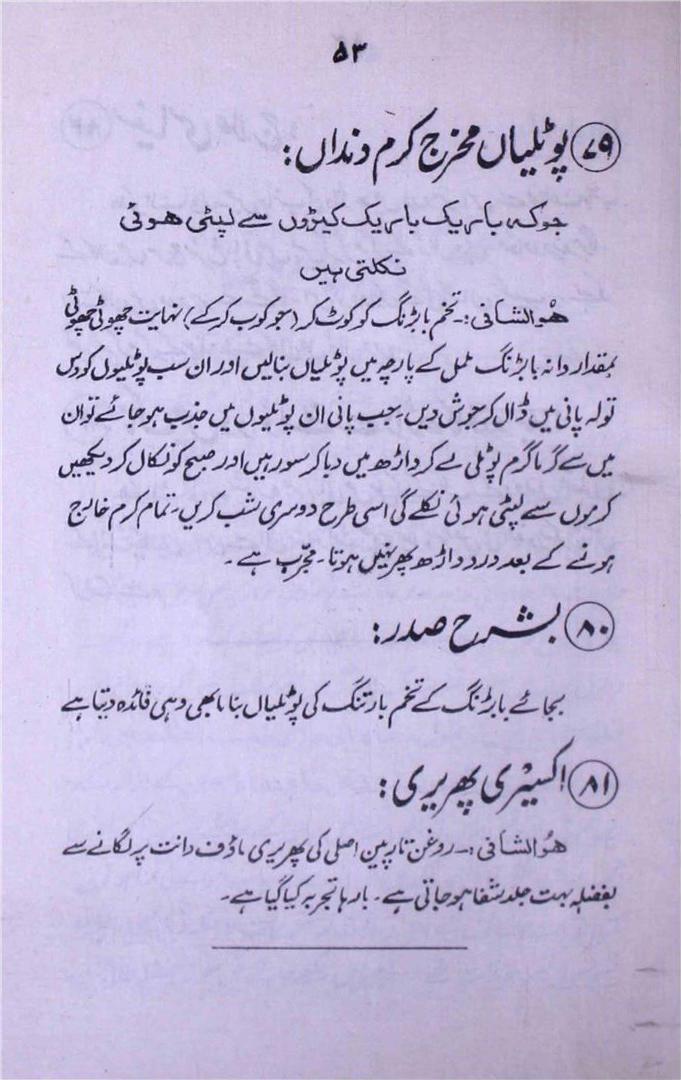 ۵۳
۷۹ پوٹلیاں مخرج کرم دنداں:
جوکہ باریک باریک کیڑوں سے لپٹی ہوئی
نکلتی ہیں
ھوالشافی:۔ تخم بابڑنگ کو کوٹ کر (جو کوب کرکے) نہایت چھوٹی چھوٹی
بمقدار دانہ بابڑنگ ململ کے پارچہ میں پوٹلیاں بنالیں اور ان سب پوٹلیوں کو دس
تولہ پانی میں ڈال کر جوش دیں۔ جب پانی ان پوٹلیوں میں جذب ہو جائے تو ان
میں سے گرما گرم پوٹلی لے کر داڑھ میں دبا کر سو رہیں اور صبح کو نکال کر دیکھیں
کرموں سے لپٹی ہوئی نکلے گی اسی طرح دوسری شب کریں۔ تمام کرم خارج
ہونے کے بعد درد داڑھ پھر نہیں ہوتا۔ مجرّب ہے۔
۸۰ بشرح صدر:
بجائے بابڑنگ کے تخم بارتنگ کی پوٹلیاں بنانا بھی وہی فائدہ دیتا ہے
۸۱ اکسیری پھریری:
ھوالشافی:۔ روغن تارپین اصلی کی پھریری ماؤف دانت پر لگانے سے
بفضلہ بہت جلد شفا ہو جاتی ہے۔ بارہا تجربہ کیا گیا ہے۔